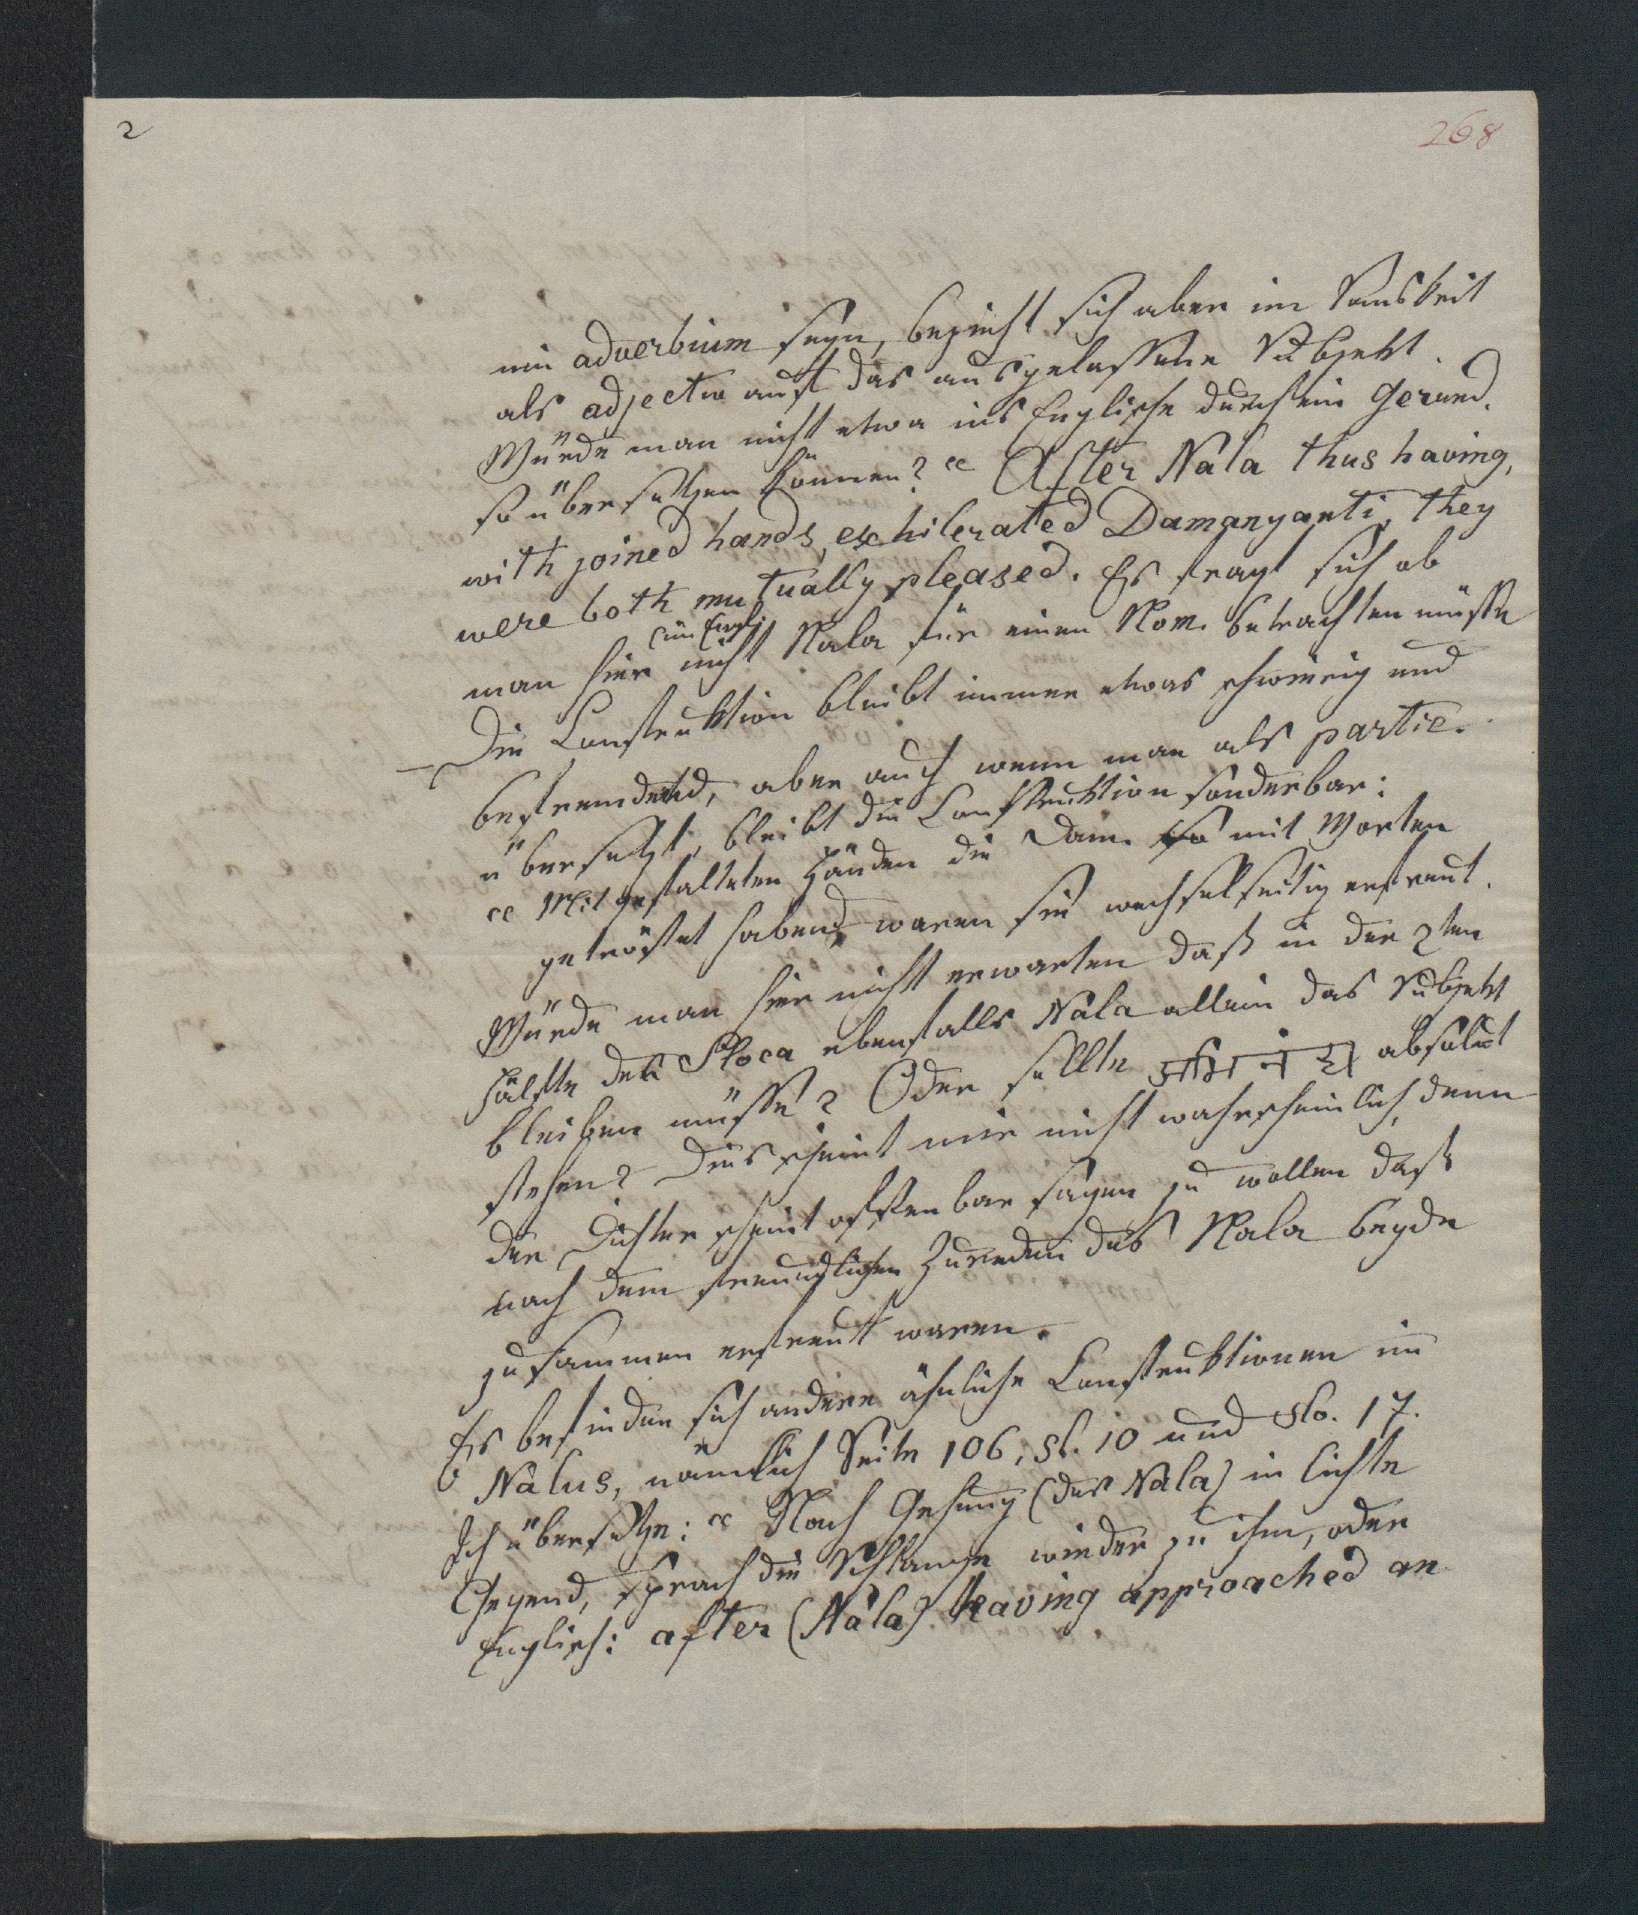 2
268
ein adverbium seyn, bezieht sich aber im Sanskrit
als adjectiv auf das ausgelassene Subjekt.
Würde man nicht etwa ins Englische durch ein Gerund.
so übersetzen können? „After Nala thus having,
with joined hands, exhilerated Damanyanti, they
were both mutually pleased. Es fragt sich ob
(im Engl.)
man hier nicht Nala für einen Nom. betrachten müsse
– Die Construktion bleibt immer etwas schwierig und
befremdend, aber auch wenn man als partic.
übersetzt, bleibt die Construktion sonderbar:
„Mit gefalteten Händen die Dam. so mit Worten
getröstet habend, waren sie wechselseitig erfreut.
Würde man hier nicht erwarten daß in der 2ten
Hälfte des Sloca ebenfalls Nala allein das Subjekt
bleiben müsse? Oder sollte absolut
stehen? Dies scheint mir nicht wahrscheinlich, denn
der Dichter scheint offenbar sagen zu wollen daß
nach dem freundlichen Zureden des Nala beyde
zusammen erfreut waren.
Es befinden sich andere ähnliche Construktionen im
Nalus, nämlich Seite 106, sl. 10 und Slo. 17.
Ich übersetze: „Nach Gehung (des Nala) in lichte
Gegend, sprach die Schlange wieder zu ihm, oder
Englisch: after (Nala) having approached an